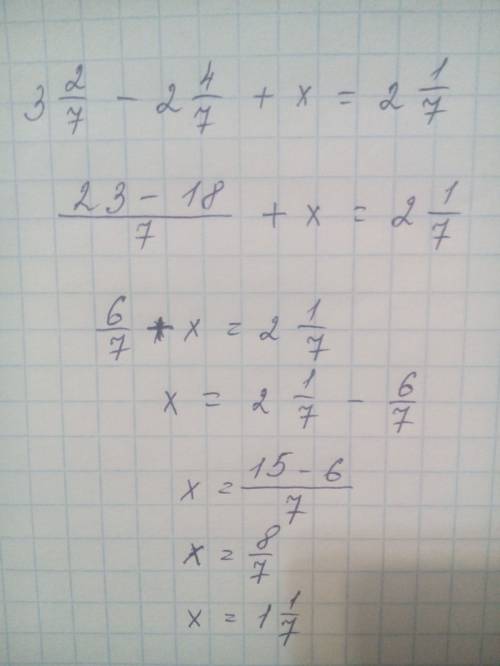 3 2/7 - 2 4/7 + x = 2 1/7
23 - 18/7 + x = 2 1/7
6/7 + x = 2 1/7
x = 2 1/7 - 6/7
x = 15 - 6/7
x = 8/7
x = 1 1/7